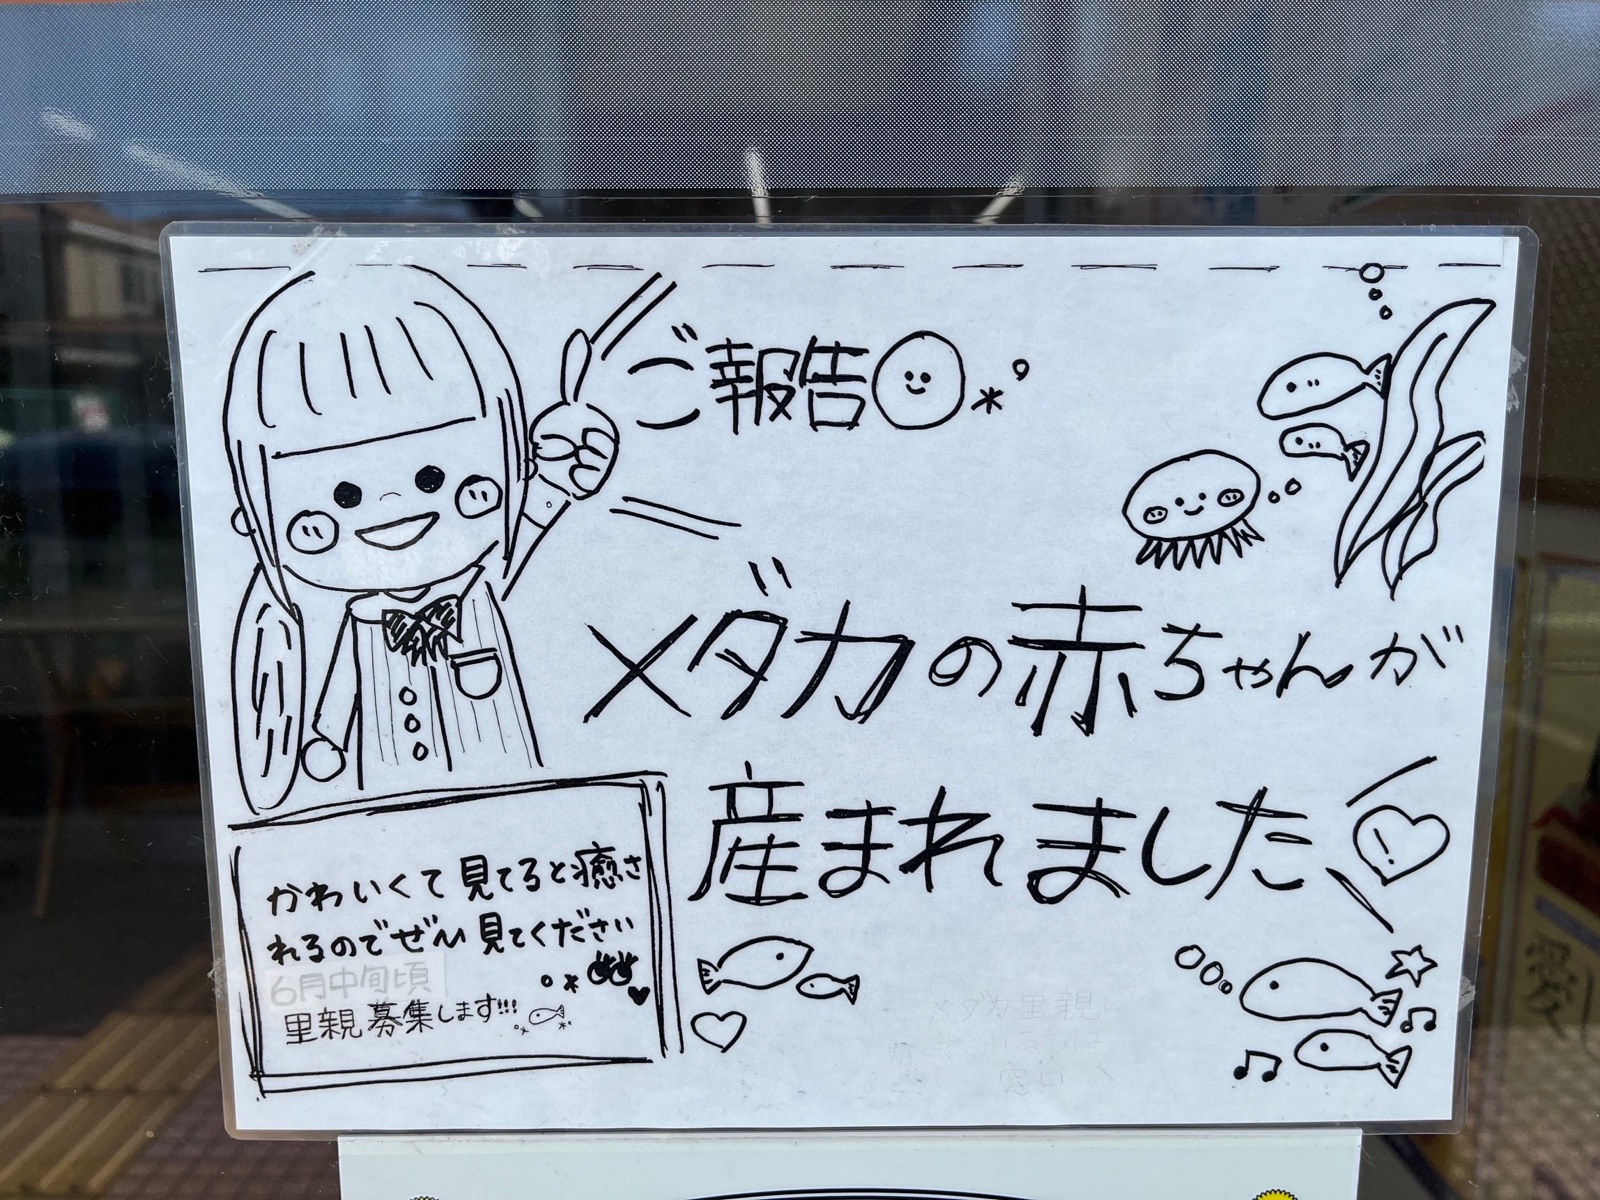 ご報告
メダカの赤ちゃんが
産まれました
かわいくて見てると癒さ
れるのでぜひ見てください
6月中旬頃
里親募集します!!!
メダカ里親
窓口
愛し